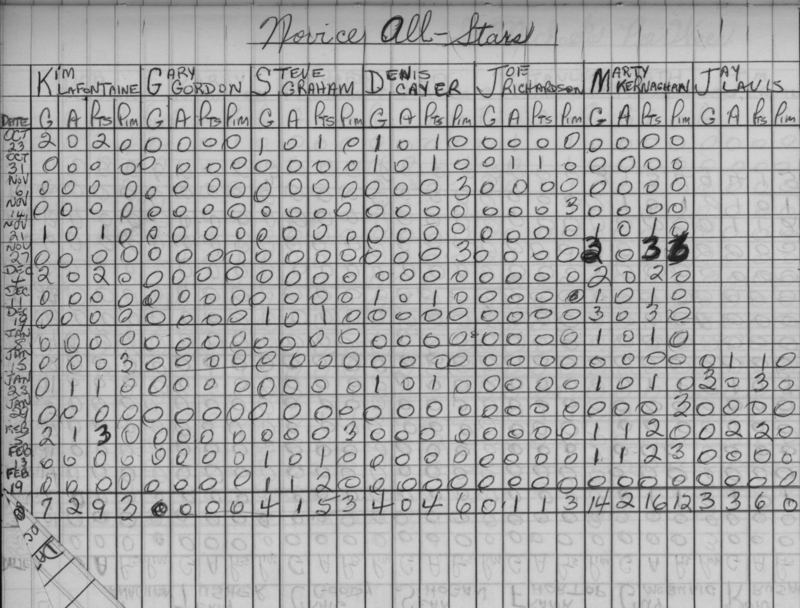 Novice All-Stars
KIM LAFONTAINE GARY GORDON STEVE GRAHAM DENIS CAYER JOIE RICHARDSON MARTY KERNAGHAN JAY LAVIS
DATE G A Pts Pim G A Pts Pim G A Pts Pim G A Pts Pim G A Pts Pim G A Pts Pim G A Pts Pim
OCT 23 2 0 2 0 0 0 0 0 1 0 1 0 1 0 1 0 0 0 0 0 0 0 0 0
OCT 31 0 0 0 0 0 0 0 0 0 0 0 0 1 0 1 0 0 1 1 0 0 0 0 0
NOV 0 0 0 0 0 0 0 0 0 0 0 0 0 0 0 3 0 0 0 0 0 0 0 0
NOV 14 0 0 0 0 0 0 0 0 0 0 0 0 0 0 0 0 0 0 0 3 0 0 0 0
NOV 21 1 0 1 0 0 0 0 0 0 0 0 0 0 0 0 0 0 0 0 0 1 0 1 0
NOV 27 0 0 0 0 0 0 0 0 0 0 0 0 0 0 0 3 0 0 0 0 3 0 3
DEC 2 0 2 0 0 0 0 0 0 0 0 0 0 0 0 0 0 0 0 0 2 0 2 0
DEC 11 0 0 0 0 0 0 0 0 0 0 0 0 1 0 1 0 0 0 0 0 1 0 1 0
DEC 19 0 0 0 0 0 0 0 0 1 0 1 0 0 0 0 0 0 0 0 0 3 0 3 0
JAN 0 0 0 0 0 0 0 0 0 0 0 0 0 0 0 0 0 0 0 0 1 0 1 0
JAN 0 0 0 3 0 0 0 0 0 0 0 0 0 0 0 0 0 0 0 0 0 0 0 0 0 1 1 0
JAN 23 0 1 1 0 0 0 0 0 0 0 0 0 1 0 1 0 0 0 0 0 1 0 1 0 3 0 3 0
JAN 0 0 0 0 0 0 0 0 0 0 0 0 0 0 0 0 0 0 0 0 0 0 0 3 0 0 0 0
FEB 2 1 3 0 0 0 0 0 0 0 0 3 0 0 0 0 0 0 0 0 1 1 2 0 0 2 2 0
FEB 13 0 0 0 0 0 0 0 0 1 0 1 0 0 0 0 0 0 0 0 0 1 1 2 3 0 0 0 0
FEB 19 0 0 0 0 0 0 0 0 1 1 2 0 0 0 0 0 0 0 0 0 0 0 0 0 0 0 0 0
7 2 9 3 0 0 0 0 4 1 5 3 4 0 4 6 0 1 1 3 14 2 16 12 3 3 6 0